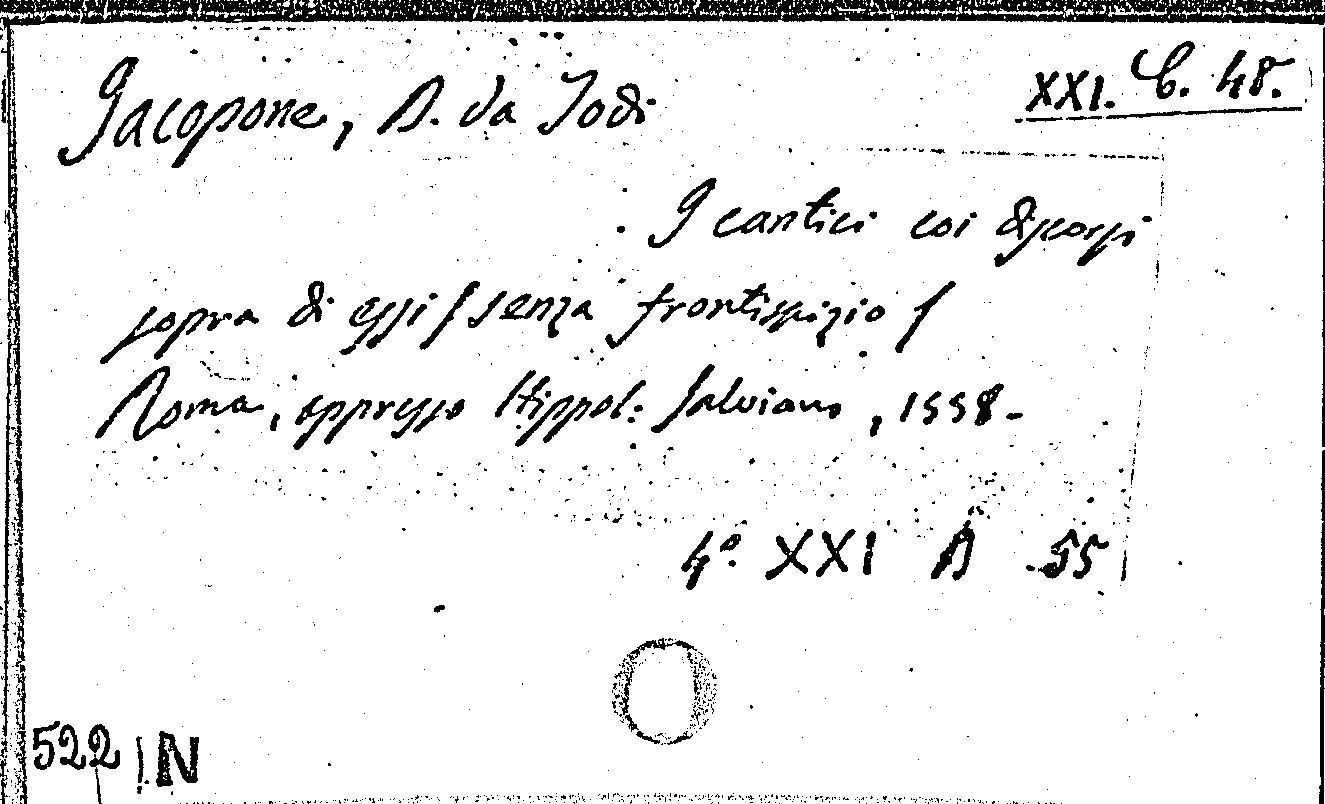 Jacopone, B. da Todi
XXI. C. 48.
I cantici coi discorsi
sopra di essi / senza frontispizio /
Roma, appresso Hippol: Salviano, 1558-
4° XXI A 55
522 | N